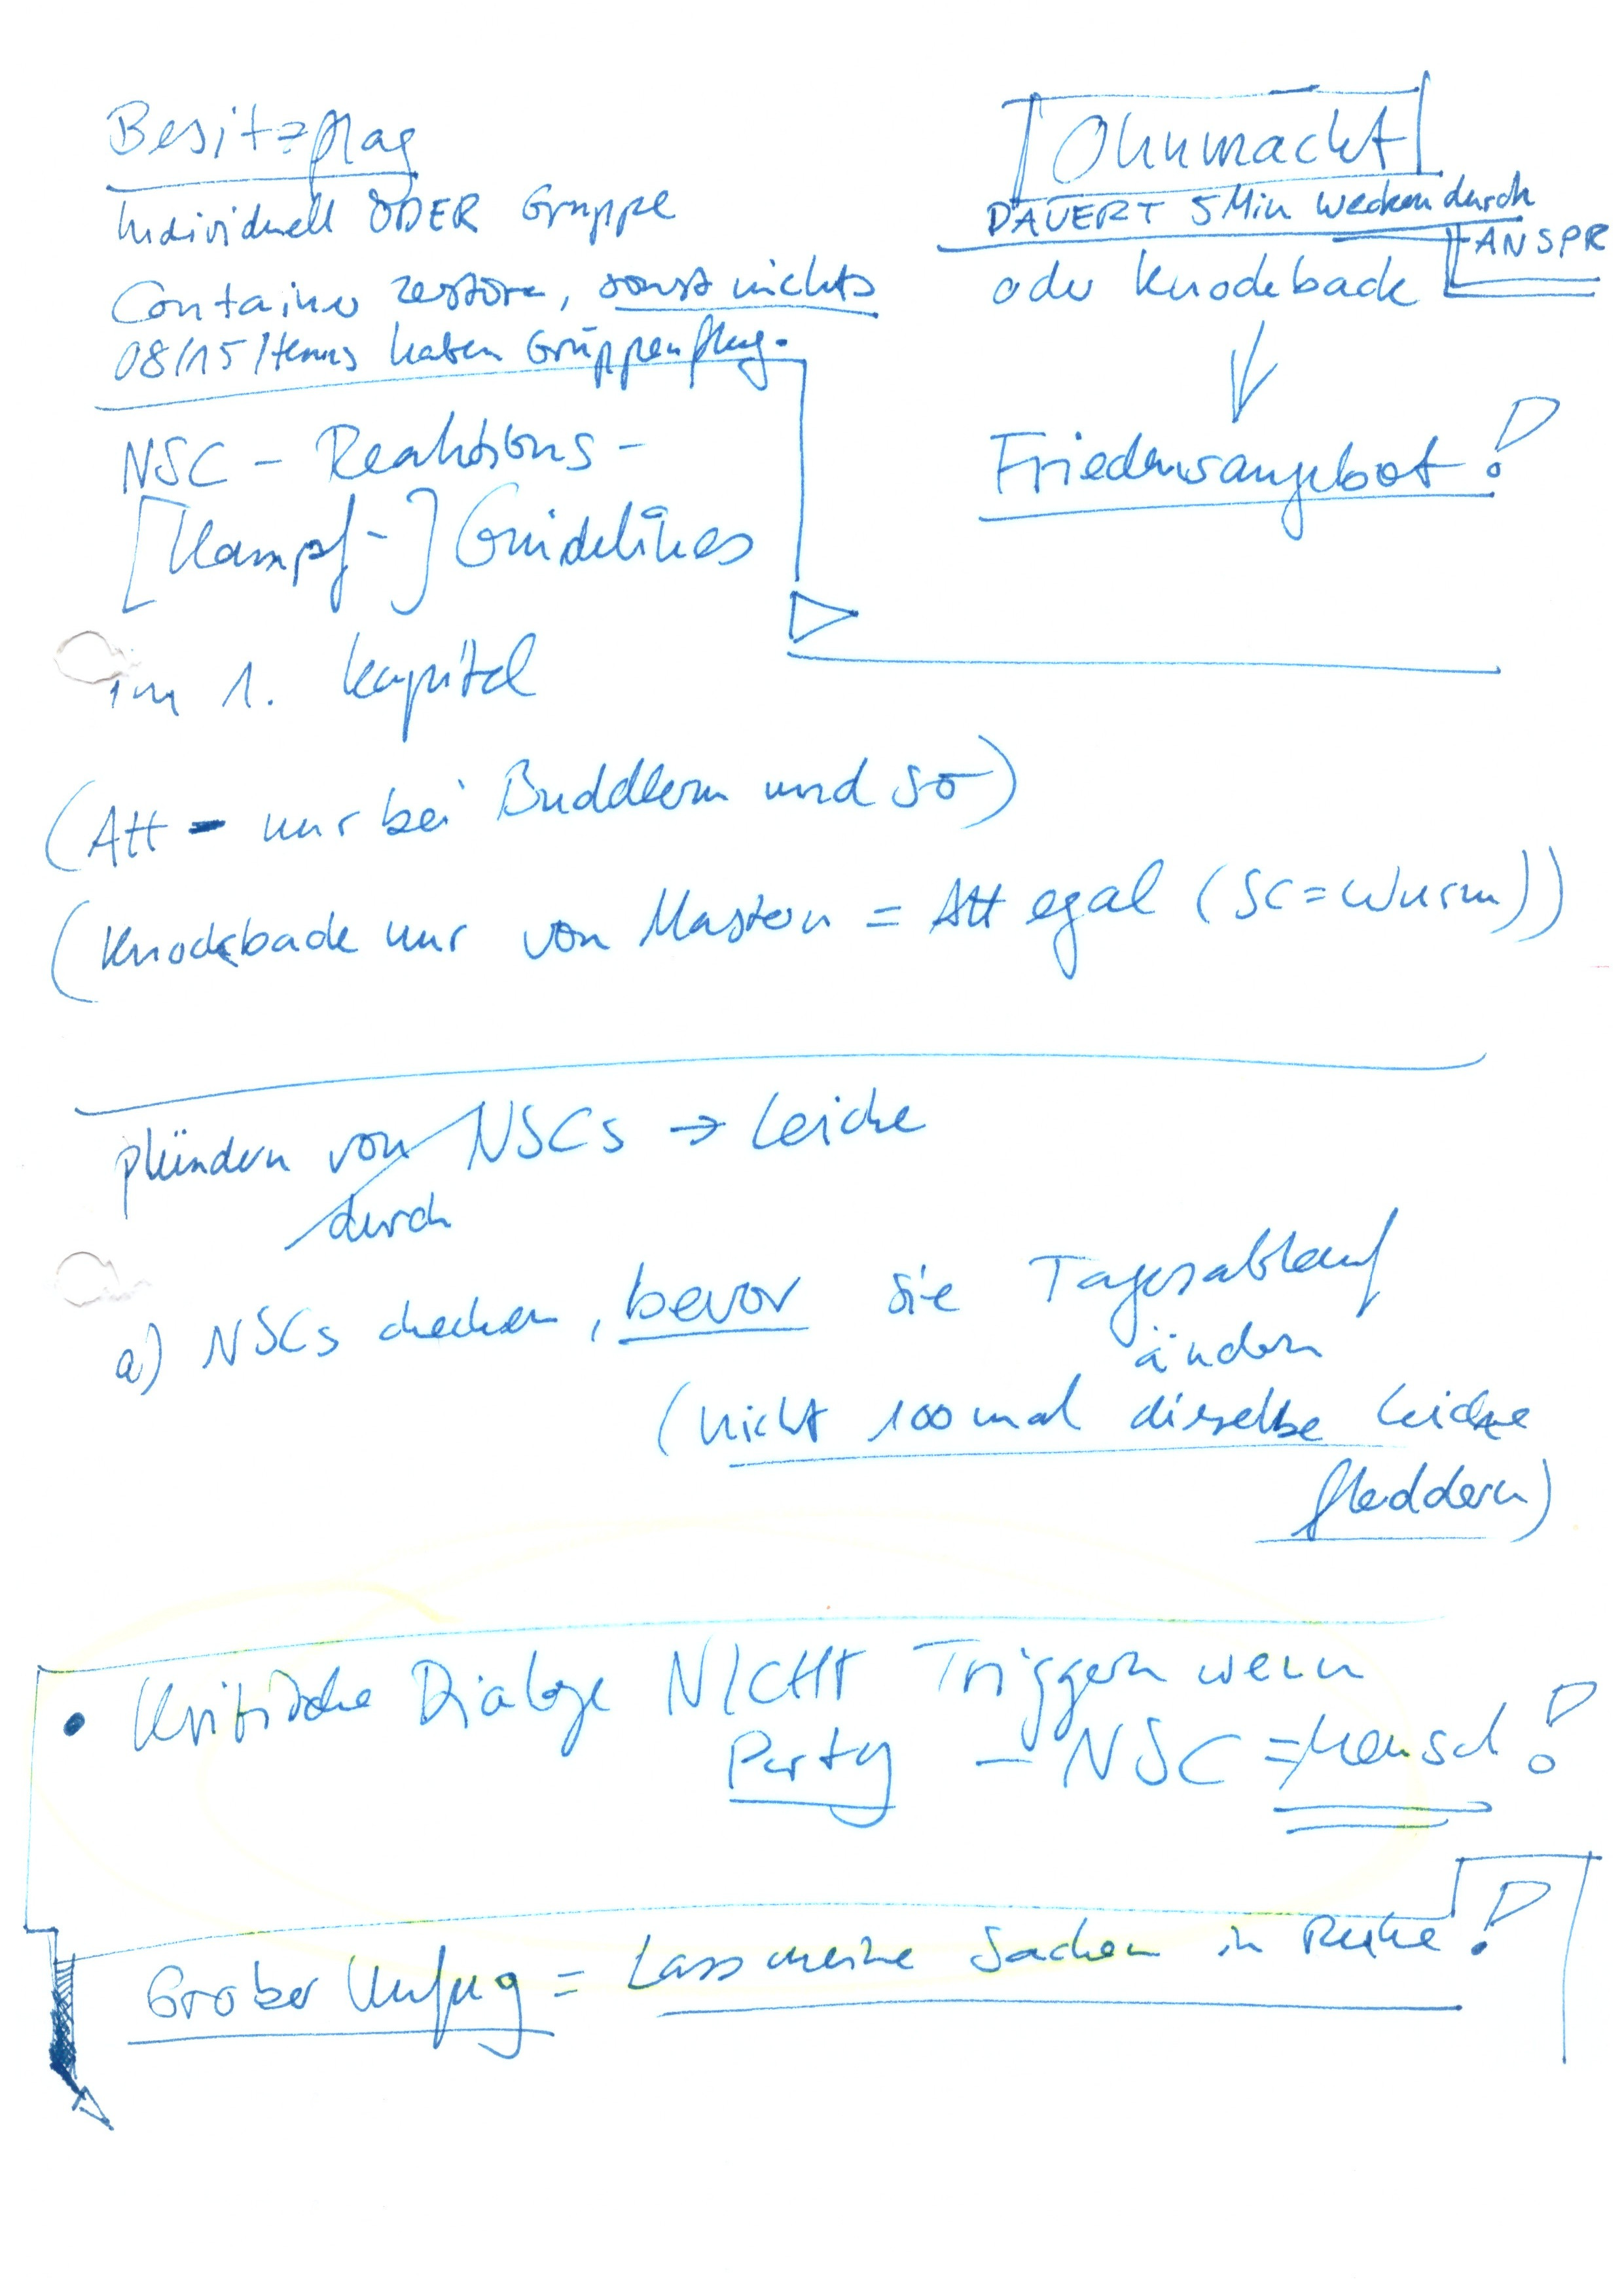 Besitzflag
Individuell ODER Gruppe
Container zerstören, sonst nichts
08/15 Items haben Gruppenflag.
Ohnmacht
DAUERT 5 Min Wecken durch
ANSPR
oder Knockback
Friedensangebot!
NSC - Reaktions-
[Kampf-] Guidelines
im 1. Kapitel
(Att - nur bei Buddlern und so)
(Knockback nur von Mastern = Att egal (SC = Wurm))
plündern von NSCs → Leiche
durch
a) NSCs checken, bevor sie Tagesablauf
ändern
(nicht 100 mal dieselbe Leiche
fleddern)
• Kritische Dialoge NICHT Triggern wenn
Party - NSC = Mensch!
Grober Unfug = Lass meine Sachen in Ruhe!